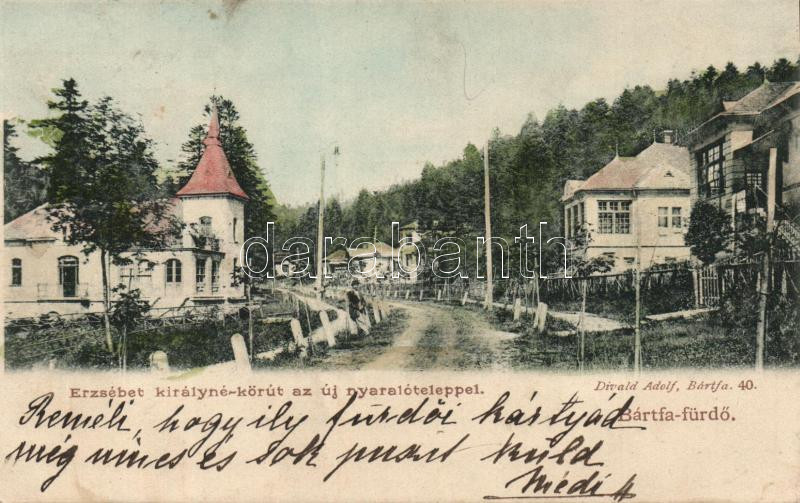 darabanth.com
Erzsébet királyné-körút az új nyaralóteleppel.
Divald Adolf, Bártfa. 40.
Bártfa-fürdő.
Reméli, hogy ily fürdői kártyád
még nincs és sok puszit küld